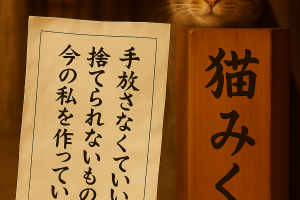 手放さなくていい
捨てられないもの
今の私を作ってい
猫みく